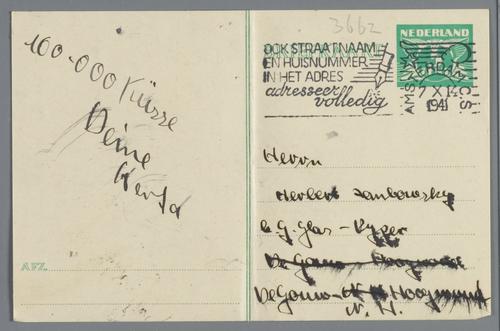 3662
NEDERLAND
OOK STRAATNAAM
EN HUISNUMMER
IN HET ADRES
adresseer
volledig
AMSTERDAM
7 X 14
1941
100-000 Küsse
Deine
Herta
Herrn
Herbert
b. G. Glas-
De Gouw
De Gouw - Hoogwoud
N. H.
AFZ.